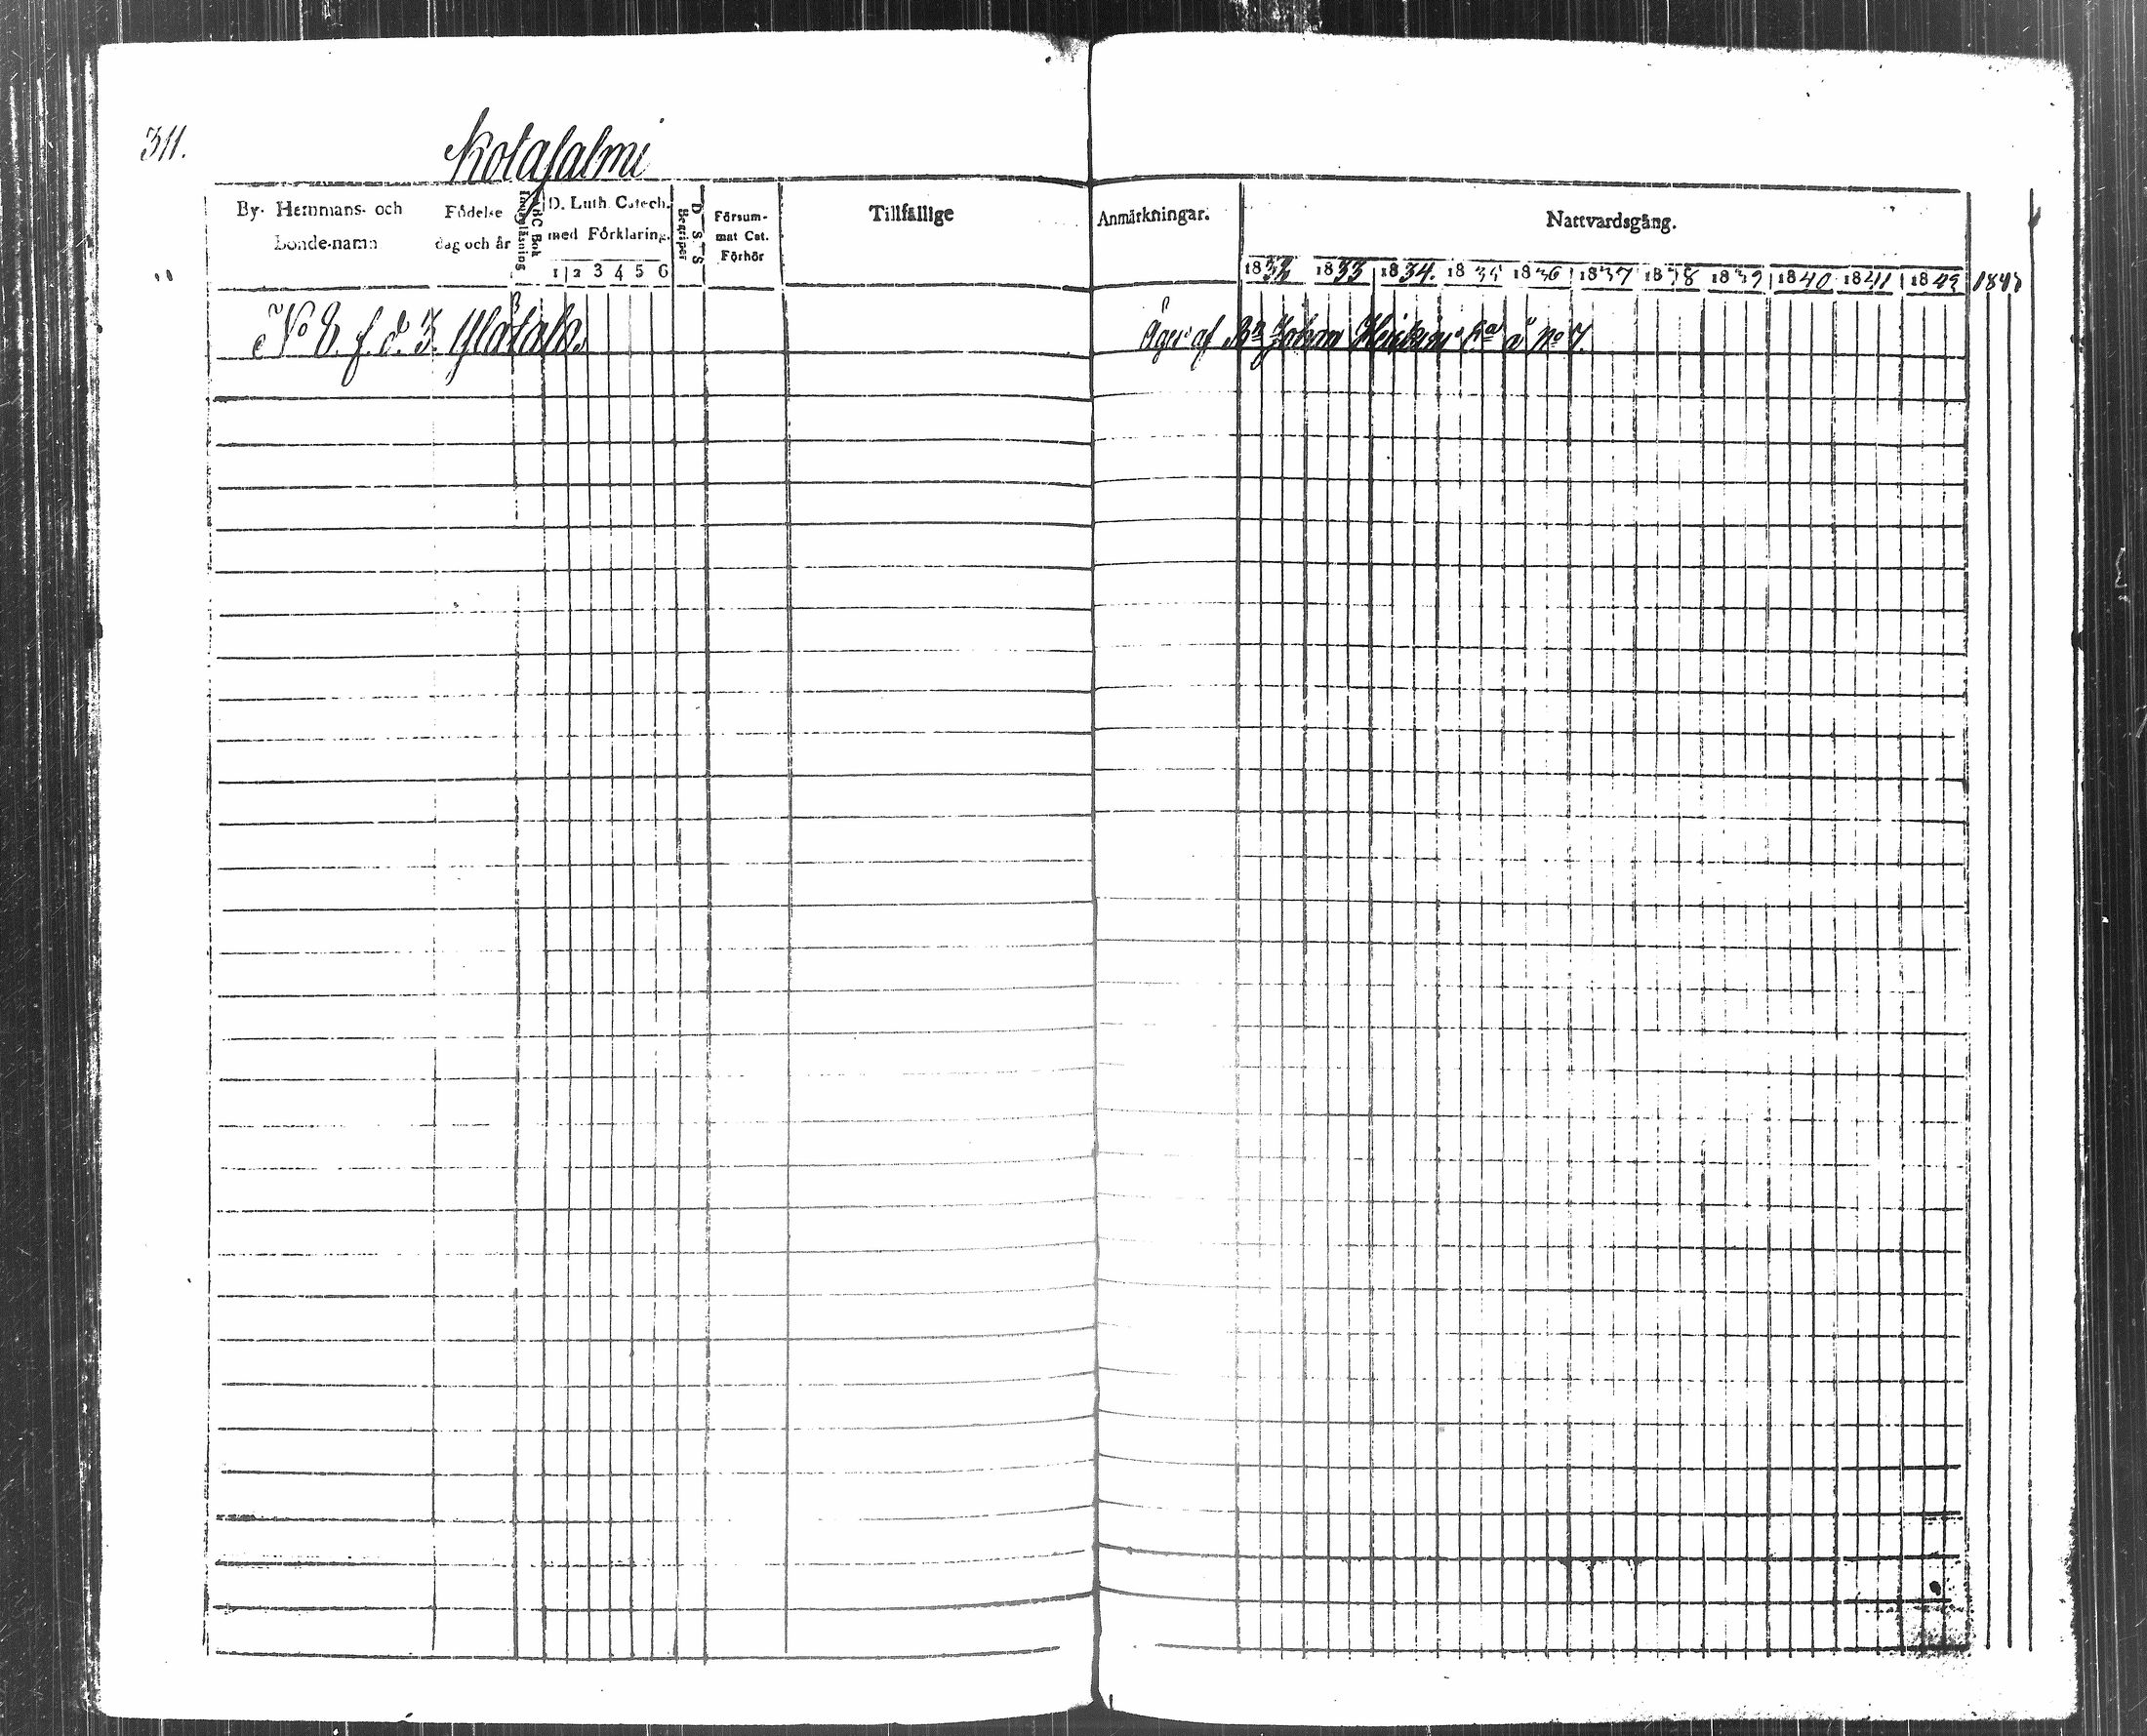 311.
Kotasalmi
By- Hemmans- och
bonde-namn
Födelse
dag och år
ABC Bok
D. Luth. Catech.
med Förklaring.
1 2 3 4 5 6
Begriper
D. S. S
Försum-
mat Cat.
Förhör
Tillfällige
Anmärkningar.
Nattvardsgång.
1832 1833 1834. 1835 1836 1837 1838 1839 1840 1841 1842
No 8. f. d. 3.
Äges af Bn Johan å No 7.